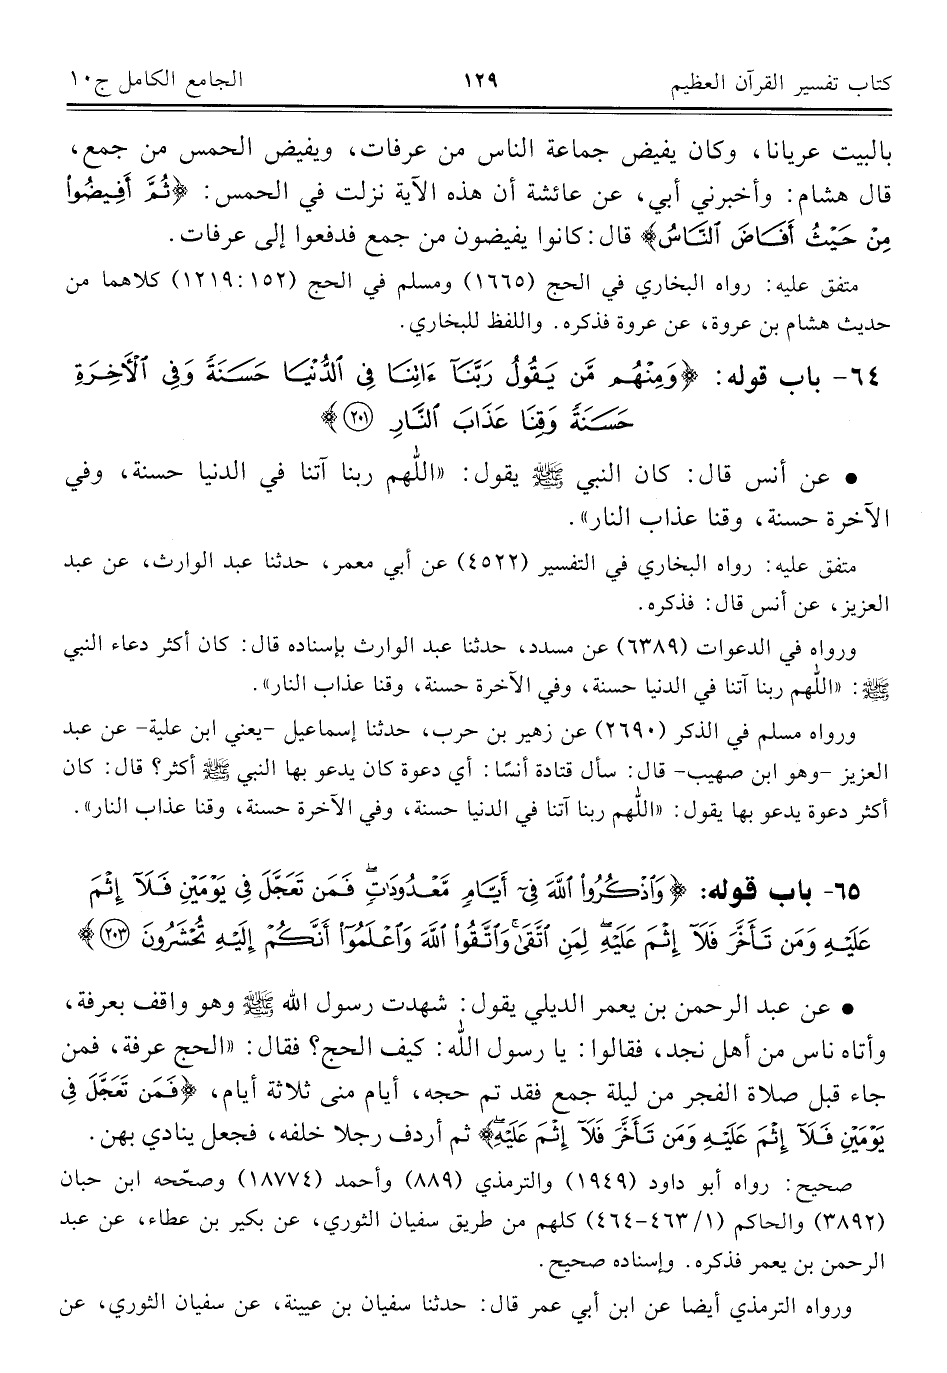 كتاب تفسير القرآن العظيم ١٢٩ الجامع الكامل ج١٠
بالبيت عريانا، وكان يفيض جماعة الناس من عرفات، ويفيض الحمس من جمع،
قال هشام: وأخبرني أبي، عن عائشة أن هذه الآية نزلت في الحمس: ﴿ثُمَّ أَفِيضُوا۟
مِنْ حَيْثُ أَفَاضَ ٱلنَّاسُ﴾ قال: كانوا يفيضون من جمع فدفعوا إلى عرفات.
متفق عليه: رواه البخاري في الحج (١٦٦٥) ومسلم في الحج (١٥٢: ١٢١٩) كلاهما من
حديث هشام بن عروة، عن عروة فذكره. واللفظ للبخاري.
٦٤- باب قوله: ﴿وَمِنْهُم مَّن يَقُولُ رَبَّنَآ ءَاتِنَا فِى ٱلدُّنْيَا حَسَنَةً وَفِى ٱلْأَخِرَةِ
حَسَنَةً وَقِنَا عَذَابَ ٱلنَّارِ ٢٠١﴾
• عن أنس قال: كان النبي ﷺ يقول: «اللّهم ربنا آتنا في الدنيا حسنة، وفي
الآخرة حسنة، وقنا عذاب النار».
متفق عليه: رواه البخاري في التفسير (٤٥٢٢) عن أبي معمر، حدثنا عبد الوارث، عن عبد
العزيز، عن أنس قال: فذكره.
ورواه في الدعوات (٦٣٨٩) عن مسدد، حدثنا عبد الوارث بإسناده قال: كان أكثر دعاء النبي
ﷺ: «اللّهم ربنا آتنا في الدنيا حسنة، وفي الآخرة حسنة، وقنا عذاب النار».
ورواه مسلم في الذكر (٢٦٩٠) عن زهير بن حرب، حدثنا إسماعيل -يعني ابن علية- عن عبد
العزيز -وهو ابن صهيب- قال: سأل قتادة أنسًا: أي دعوة كان يدعو بها النبي ﷺ أكثر؟ قال: كان
أكثر دعوة يدعو بها يقول: «اللّهم ربنا آتنا في الدنيا حسنة، وفي الآخرة حسنة، وقنا عذاب النار».
٦٥- باب قوله: ﴿وَٱذْكُرُوا۟ ٱللَّهَ فِىٓ أَيَّامٍ مَّعْدُودَٰتٍ ۚ فَمَن تَعَجَّلَ فِى يَوْمَيْنِ فَلَآ إِثْمَ
عَلَيْهِ وَمَن تَأَخَّرَ فَلَآ إِثْمَ عَلَيْهِ ۚ لِمَنِ ٱتَّقَىٰ ۗ وَٱتَّقُوا۟ ٱللَّهَ وَٱعْلَمُوٓا۟ أَنَّكُمْ إِلَيْهِ تُحْشَرُونَ ٢٠٣﴾
• عن عبد الرحمن بن يعمر الديلي يقول: شهدت رسول الله ﷺ وهو واقف بعرفة،
وأتاه ناس من أهل نجد، فقالوا: يا رسول اللّٰه: كيف الحج؟ فقال: «الحج عرفة، فمن
جاء قبل صلاة الفجر من ليلة جمع فقد تم حجه، أيام منى ثلاثة أيام، ﴿فَمَن تَعَجَّلَ فِى
يَوْمَيْنِ فَلَآ إِثْمَ عَلَيْهِ وَمَن تَأَخَّرَ فَلَآ إِثْمَ عَلَيْهِ﴾ ثم أردف رجلا خلفه، فجعل ينادي بهن.
صحيح: رواه أبو داود (١٩٤٩) والترمذي (٨٨٩) وأحمد (١٨٧٧٤) وصحّحه ابن حبان
(٣٨٩٢) والحاكم (١/ ٤٦٣-٤٦٤) كلهم من طريق سفيان الثوري، عن بكير بن عطاء، عن عبد
الرحمن بن يعمر فذكره. وإسناده صحيح.
ورواه الترمذي أيضا عن ابن أبي عمر قال: حدثنا سفيان بن عيينة، عن سفيان الثوري، عن